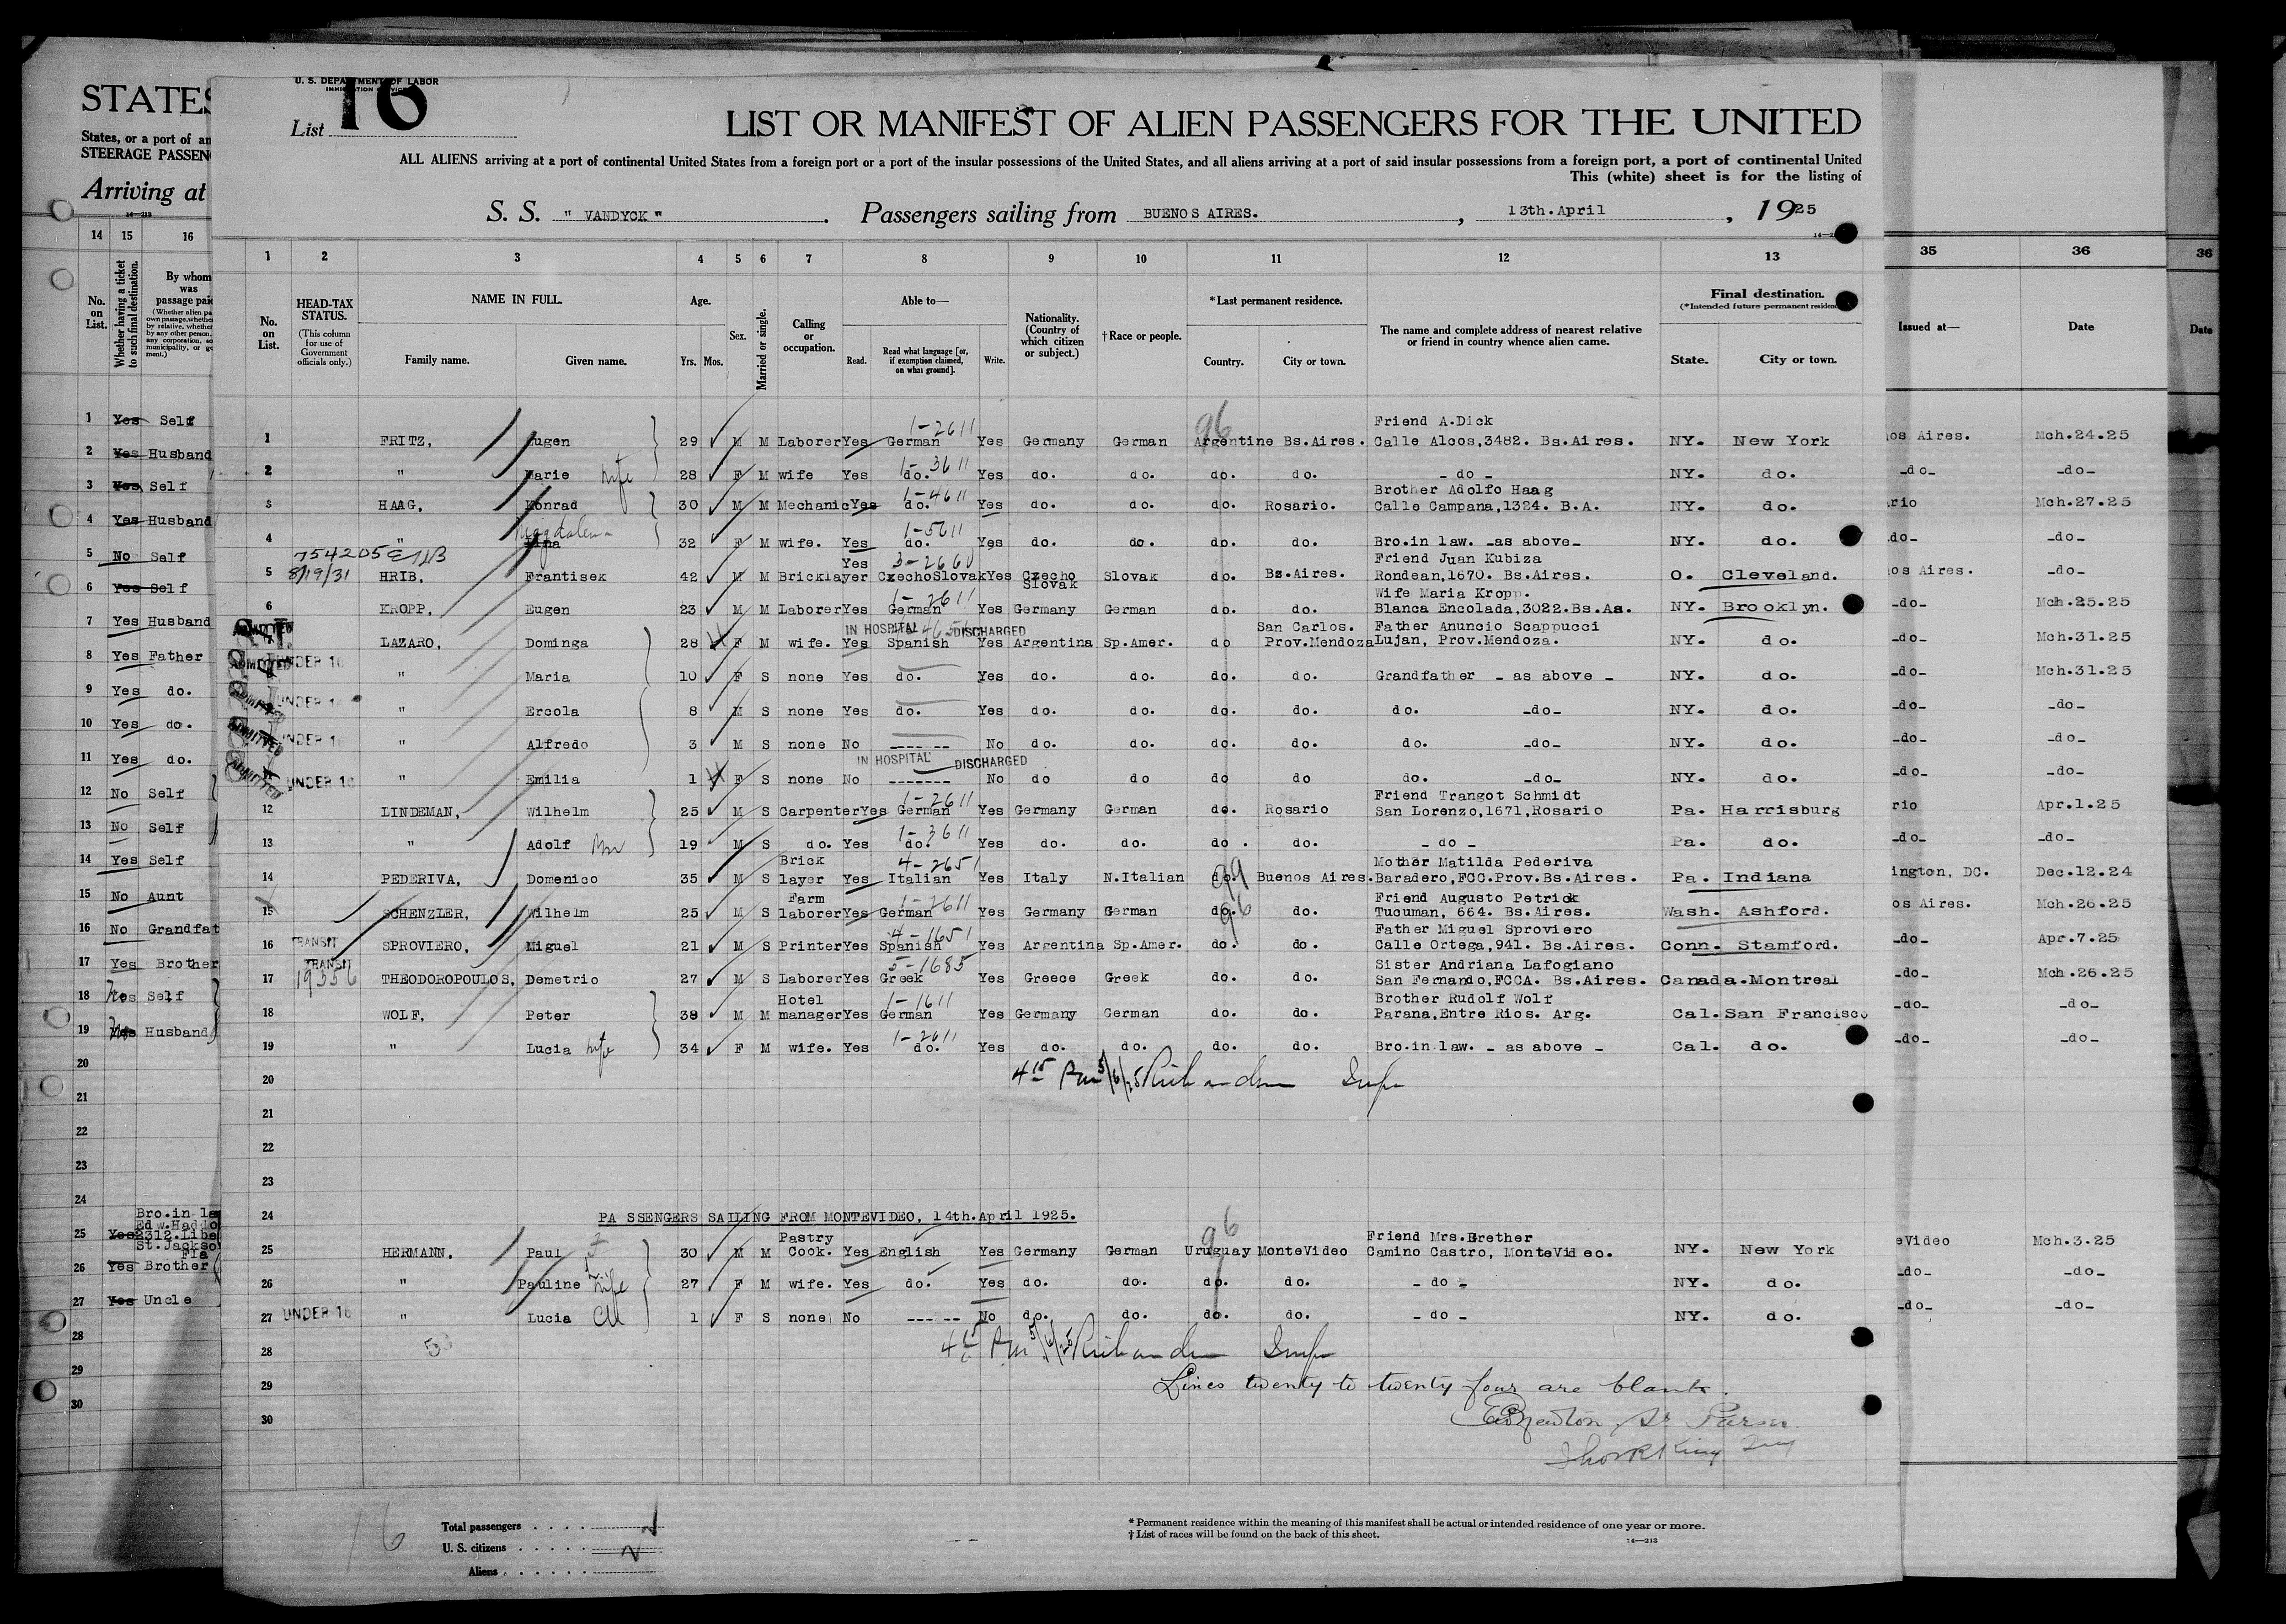 STATES
States, or a port of an
STEERAGE PASSEN
Arriving at
14 15 16
No. on List.
Whether having a ticket to such final destination.
By whom was passage paid
1 Yes Self
2 Yes Husband
3 Yes Self
4 Yes Husband
5 No Self
6 Yes Self
7 Yes Husband
8 Yes Father
9 Yes do.
10 Yes do.
11 Yes do.
12 No Self
13 No Self
14 Yes Self
15 No Aunt
16 No Grandfat
17 Yes Brother
18 Self
19 Husband
20
21
22
23
24
Bro.in la
Edw.Haddo
25 Yes 2312.Libe
St.Jackso
Fla
26 Yes Brother
27 Yes Uncle
28
29
30
U. S. DEPARTMENT OF LABOR
IMMIGRATION SERVICE
List 16
LIST OR MANIFEST OF ALIEN PASSENGERS FOR THE UNITED
ALL ALIENS arriving at a port of continental United States from a foreign port or a port of the insular possessions of the United States, and all aliens arriving at a port of said insular possessions from a foreign port, a port of continental United
This (white) sheet is for the listing of
S. S. " VANDYCK " . Passengers sailing from BUENOS AIRES. , 13th.April , 1925
1 2 3 4 5 6 7 8 9 10 11 12 13
No. on List.
HEAD-TAX STATUS.
(This column for use of Government officials only.)
NAME IN FULL.
Family name. Given name.
Age.
Yrs. Mos.
Sex.
Married or single.
Calling or occupation.
Able to—
Read. Read what language [or, if exemption claimed, on what ground]. Write.
Nationality. (Country of which citizen or subject.)
†Race or people.
*Last permanent residence.
Country. City or town.
The name and complete address of nearest relative or friend in country whence alien came.
Final destination.
(*Intended future permanent residen
State. City or town.
96 Friend A.Dick
1-2611
1 FRITZ, Eugen 29 M M Laborer Yes German Yes Germany German Argentine Bs.Aires. Calle Alcos,3482. Bs.Aires. NY. New York
1-3611
2 " Marie wife 28 F M wife Yes do. Yes do. do. do. do. - do - NY. do.
1-4611 Brother Adolfo Haag
3 HAAG, Konrad 30 M M Mechanic Yes do. Yes do. do. do. Rosario. Calle Campana,1324. B.A. NY. do.
Magdalena 1-5611
4 " 32 F M wife. Yes do. Yes do. do. do. do. Bro.in law. -as above- NY. do.
754205 Yes 3-2660 Friend Juan Kubiza
5 8/19/31 HRIB, Frantisek 42 M M Bricklayer CzechoSlovak Yes Czecho Slovak Slovak do. Bs.Aires. Rondean,1670. Bs.Aires. O. Cleveland.
1-2611 Wife Maria Kropp.
6 KROPP, Eugen 23 M M Laborer Yes German Yes Germany German do. do. Blanca Encolada,3022.Bs.As. NY. Brooklyn.
ADMITTED IN HOSPITAL DISCHARGED San Carlos. Father Anuncio Scappucci
LAZARO, Dominga 28 F M wife. Yes Spanish Yes Argentina Sp.Amer. do Prov.Mendoza Lujan, Prov.Mendoza. NY. do.
ADMITTED UNDER 16 " Maria 10 F S none Yes do. Yes do. do. do. do. Grandfather - as above - NY. do.
ADMITTED UNDER 16 " Ercola 8 M S none Yes do. Yes do. do. do. do. do. -do- NY. do.
ADMITTED UNDER 16 " Alfredo 3 M S none No ------- No do. do. do. do. do. -do- NY. do.
IN HOSPITAL DISCHARGED
ADMITTED UNDER 16 " Emilia 1 F S none No ------- No do do do do do. -do- NY. do.
1-2611 Friend Trangot Schmidt
12 LINDEMAN, Wilhelm 25 M S Carpenter Yes German Yes Germany German do. Rosario San Lorenzo,1671,Rosario Pa. Harrisburg
1-3611
13 " Adolf 19 M S do. Yes do. Yes do. do. do. do. - do - Pa. do.
Brick 4-2651 Mother Matilda Pederiva
14 PEDERIVA, Domenico 35 M S layer Yes Italian Yes Italy N.Italian do. 99 Buenos Aires. Baradero,FCC.Prov.Bs.Aires. Pa. Indiana
Farm 1-2611 Friend Augusto Petrick
15 SCHENZIER, Wilhelm 25 M S laborer Yes German Yes Germany German do. 96 do. Tucuman, 664. Bs.Aires. Wash. Ashford.
TRANSIT 4-1651 Father Miguel Sproviero
16 SPROVIERO, Miguel 21 M S Printer Yes Spanish Yes Argentina Sp.Amer. do. do. Calle Ortega,941. Bs.Aires. Conn. Stamford.
TRANSIT 5-1685 Sister Andriana Lafogiano
17 19356 THEODOROPOULOS, Demetrio 27 M S Laborer Yes Greek Yes Greece Greek do. do. San Fernando,FCCA. Bs.Aires. Canada.Montreal
Hotel 1-1611 Brother Rudolf Wolf
18 WOLF, Peter 38 M M manager Yes German Yes Germany German do. do. Parana,Entre Rios. Arg. Cal. San Francisco
1-2611
19 " Lucia wife 34 F M wife. Yes do. Yes do. do. do. do. Bro.in law. - as above - Cal. do.
20 4 15 Pm 5/6/25 Richardson Insp
21
22
23
24 PASSENGERS SAILING FROM MONTEVIDEO, 14th.April 1925.
Pastry 96 Friend Mrs.Brether
25 HERMANN, Paul 30 M M Cook. Yes English Yes Germany German Uruguay MonteVideo Camino Castro, MonteVideo. NY. New York
26 " Pauline wife 27 F M wife. Yes do. Yes do. do. do. do. - do - NY. do.
27 UNDER 16 " Lucia Ch 1 F S none No ------ No do. do. do. do. - do - NY. do.
28 4 15 Pm 5/6/25 Richardson Insp
29 Lines twenty to twenty four are blank.
30 Newton Purser
16
Total passengers
U. S. citizens
Aliens
* Permanent residence within the meaning of this manifest shall be actual or intended residence of one year or more.
† List of races will be found on the back of this sheet.
14—213
35 36
Issued at— Date
os Aires. Mch.24.25
-do- -do-
rio Mch.27.25
do- -do-
os Aires. -do-
-do- Mch.25.25
-do- Mch.31.25
-do- Mch.31.25
-do- -do-
-do- -do-
-do- -do-
rio Apr.1.25
-do- -do-
ington, DC. Dec.12.24
os Aires. Mch.26.25
-do- Apr.7.25
-do- Mch.26.25
-do- -do-
-do- -do-
eVideo Mch.3.25
-do- -do-
-do- -do-
36
Date